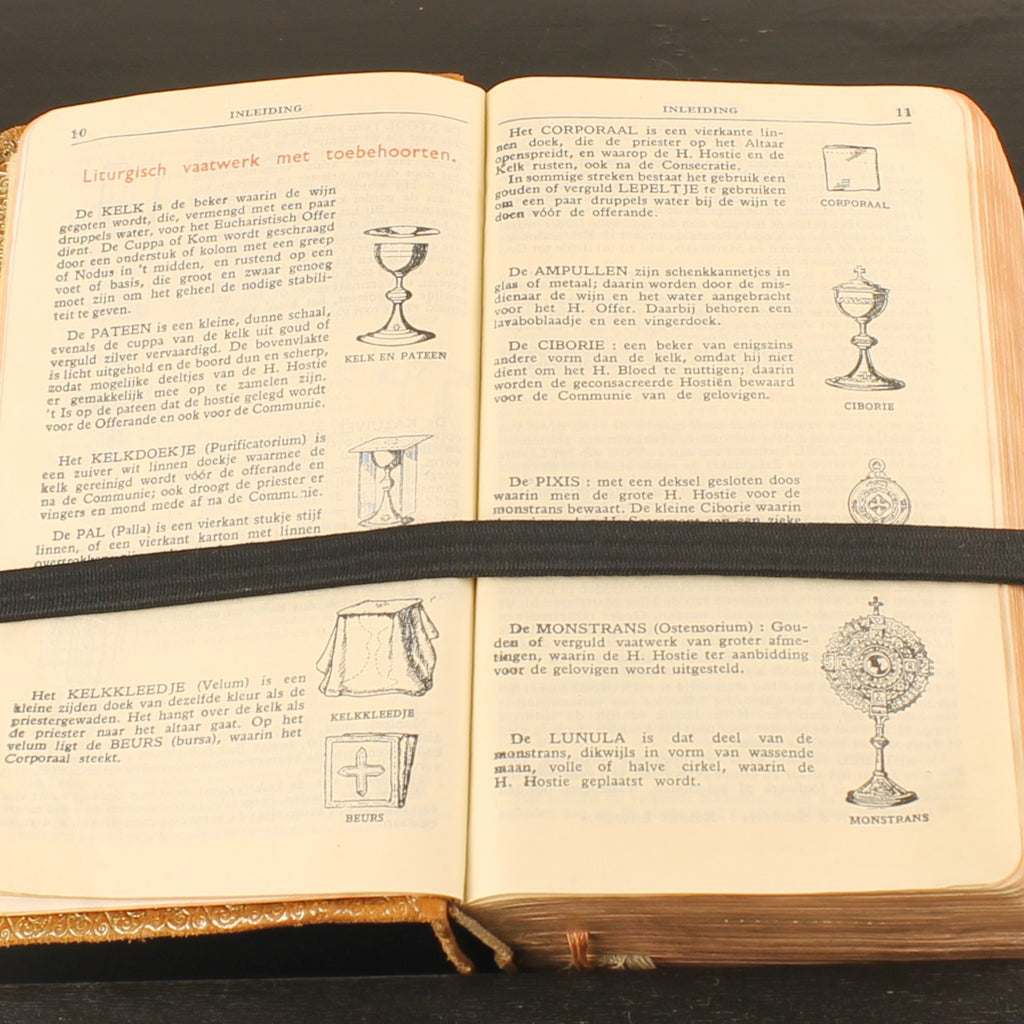 10
INLEIDING
Liturgisch vaatwerk met toebehoorten.
De KELK is de beker waarin de wijn
gegoten wordt, die, vermengd met een paar
druppels water, voor het Eucharistisch Offer
dient. De Cuppa of Kom wordt geschraagd
door een onderstuk of kolom met een greep
of Nodus in 't midden, en rustend op een
voet of basis, die groot en zwaar genoeg
moet zijn om het geheel de nodige stabili-
teit te geven.
De PATEEN is een kleine, dunne schaal,
evenals de cuppa van de kelk uit goud of
verguld zilver vervaardigd. De bovenvlakte
is licht uitgehold en de boord dun en scherp,
zodat mogelijke deeltjes van de H. Hostie
er gemakkelijk mee op te zamelen zijn.
't Is op de pateen dat de hostie gelegd wordt
voor de Offerande en ook voor de Communie.
KELK EN PATEEN
Het KELKDOEKJE (Purificatorium) is
een zuiver wit linnen doekje waarmee de
kelk gereinigd wordt vóór de offerande en
na de Communie; ook droogt de priester er
vingers en mond mede af na de Communie.
De PAL (Palla) is een vierkant stukje stijf
linnen, of een vierkant karton met linnen
Het KELKKLEEDJE (Velum) is een
kleine zijden doek van dezelfde kleur als de
priestergewaden. Het hangt over de kelk als
de priester naar het altaar gaat. Op het
velum ligt de BEURS (bursa), waarin het
Corporaal steekt.
KELKKLEEDJE
BEURS
INLEIDING
11
Het CORPORAAL is een vierkante lin-
nen doek, die de priester op het Altaar
openspreidt, en waarop de H. Hostie en de
Kelk rusten, ook na de Consecratie.
In sommige streken bestaat het gebruik een
gouden of verguld LEPELTJE te gebruiken
om een paar druppels water bij de wijn te
doen vóór de offerande.
CORPORAAL
De AMPULLEN zijn schenkkannetjes in
glas of metaal; daarin worden door de mis-
dienaar de wijn en het water aangebracht
voor het H. Offer. Daarbij behoren een
lavaboblaadje en een vingerdoek.
De CIBORIE : een beker van enigszins
andere vorm dan de kelk, omdat hij niet
dient om het H. Bloed te nuttigen; daarin
worden de geconsacreerde Hostiën bewaard
voor de Communie van de gelovigen.
CIBORIE
De PIXIS : met een deksel gesloten doos
waarin men de grote H. Hostie voor de
monstrans bewaart. De kleine Ciborie waarin
De MONSTRANS (Ostensorium) : Gou-
den of verguld vaatwerk van groter afme-
tingen, waarin de H. Hostie ter aanbidding
voor de gelovigen wordt uitgesteld.
De LUNULA is dat deel van de
monstrans, dikwijls in vorm van wassende
maan, volle of halve cirkel, waarin de
H. Hostie geplaatst wordt.
MONSTRANS